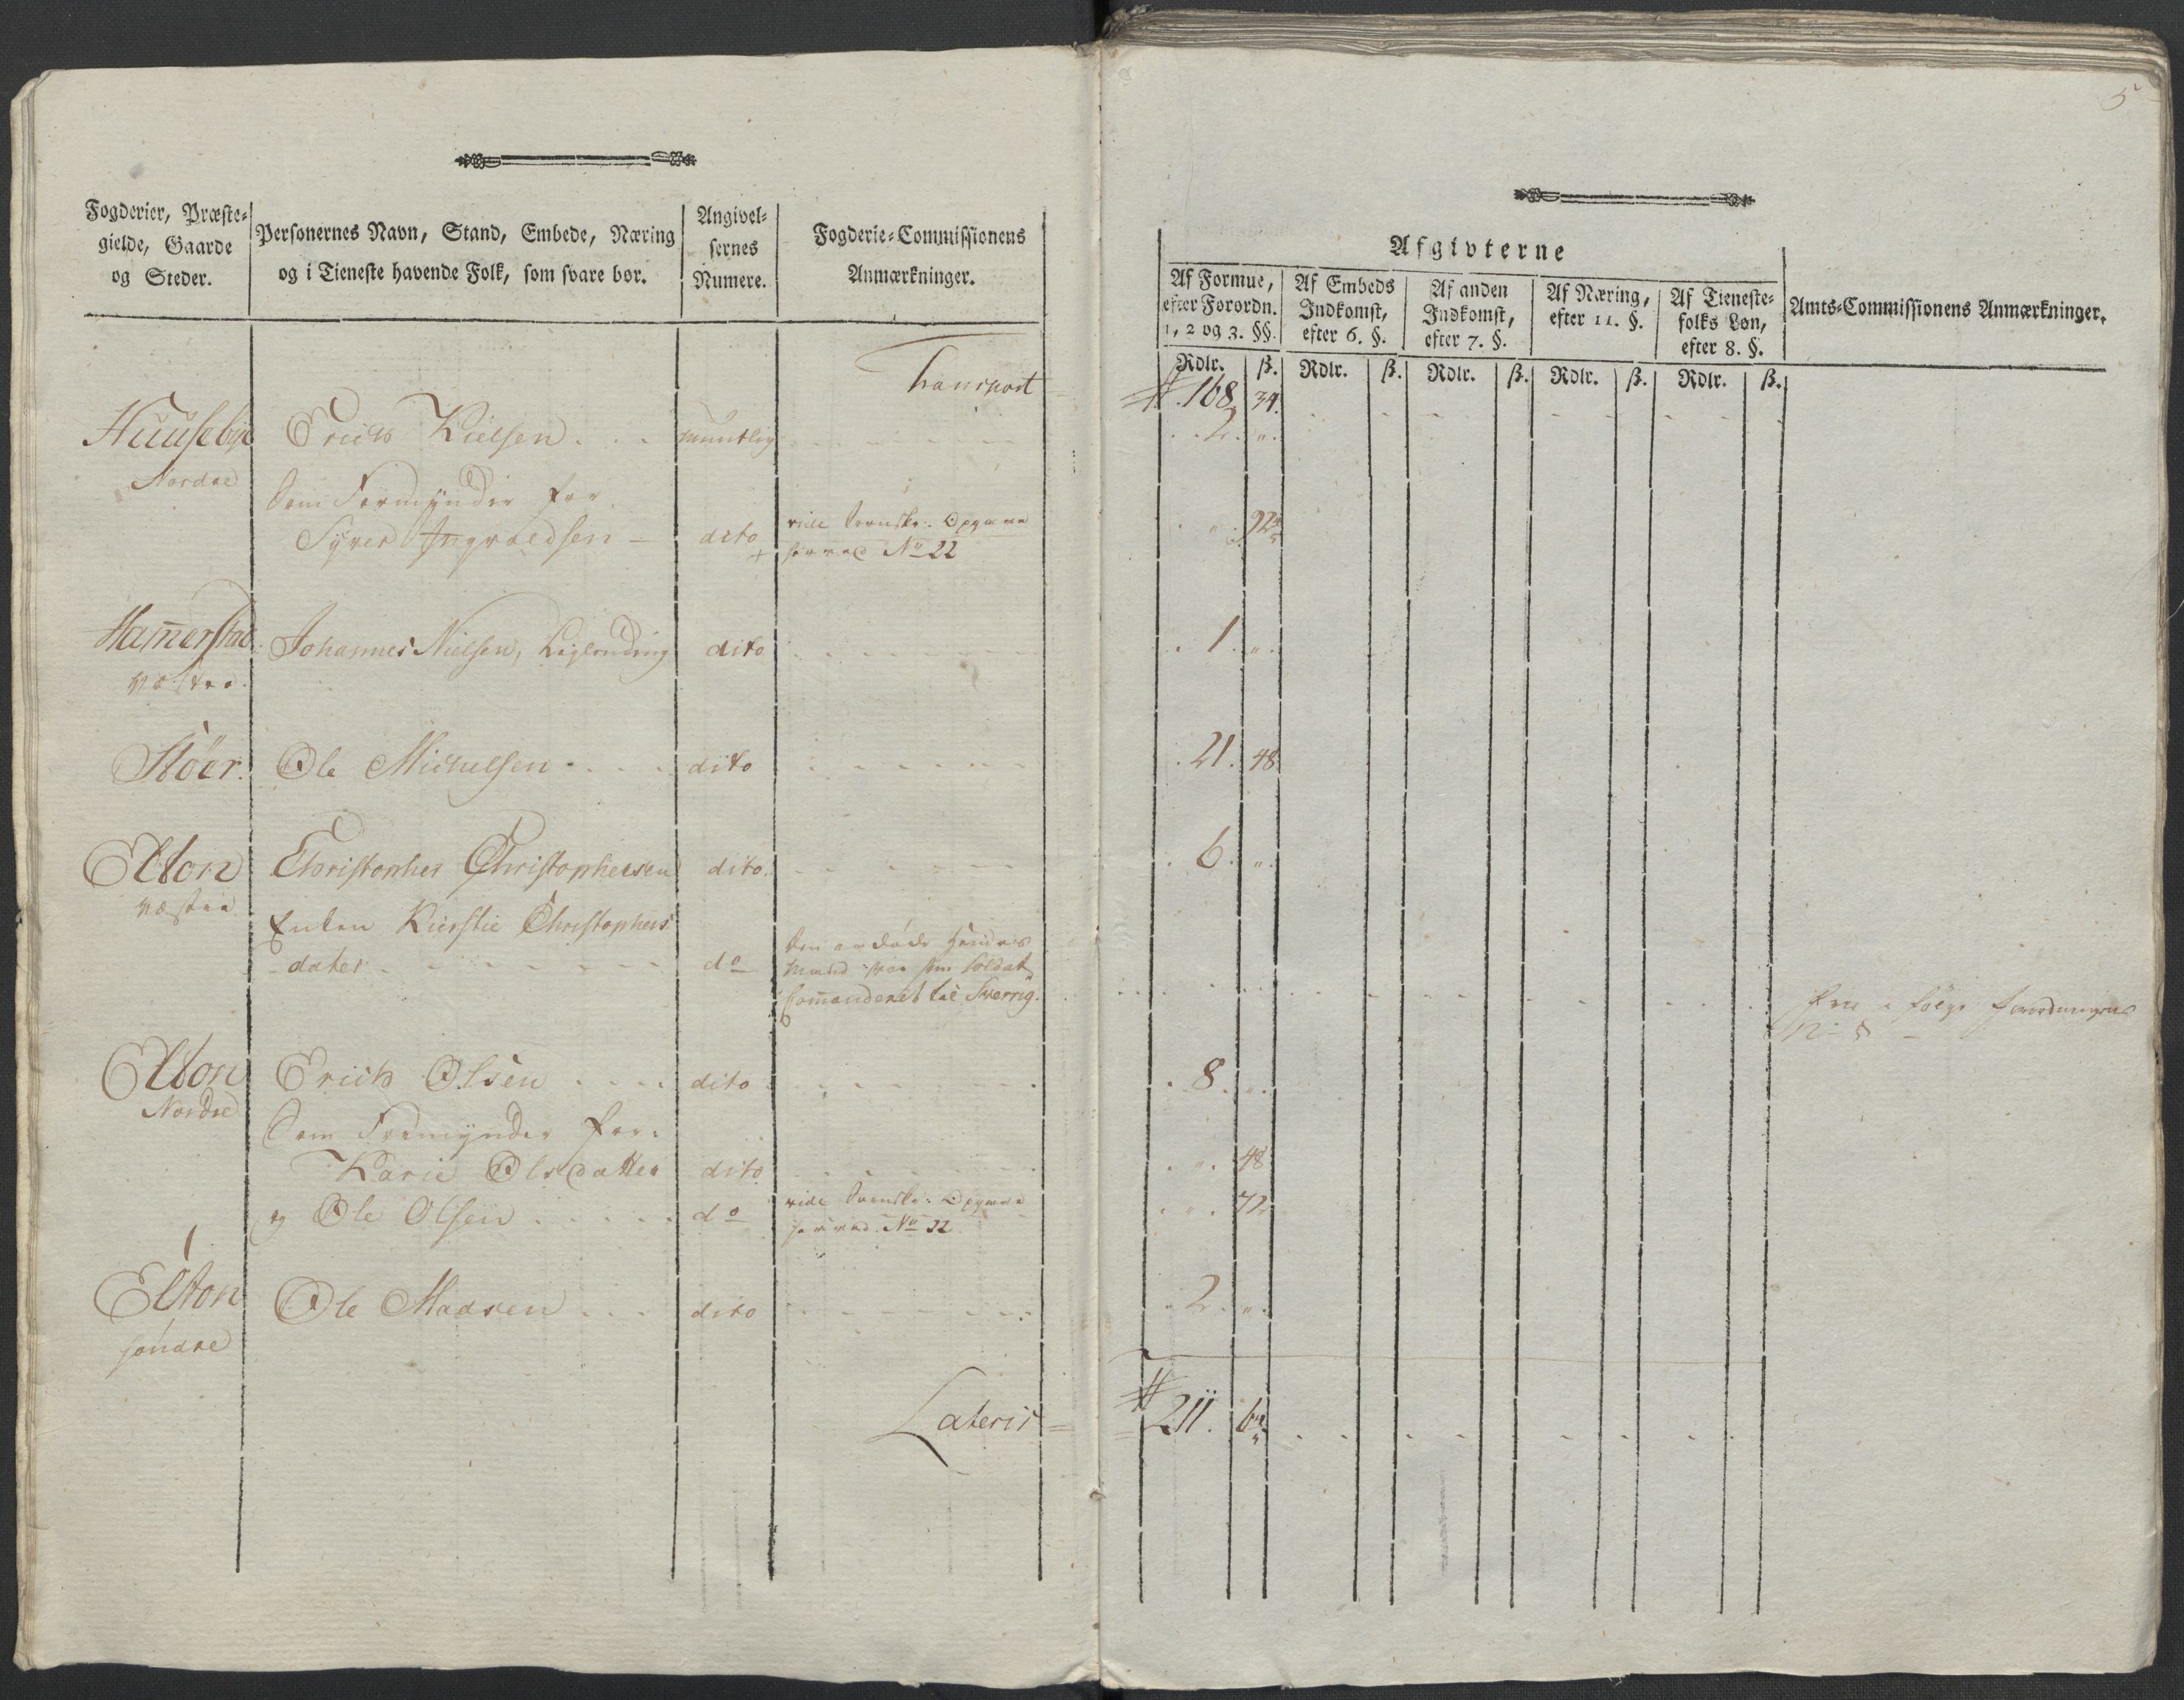 Fogderier, Præste-
gielde, Gaarde
og Steder.
Personernes Navn, Stand, Embede, Næring
og i Tieneste havende Folk, som svare bør.
Angivel-
sernes
Numere.
Fogderie-Commissionens
Anmærkninger.
Transport
Huusebye Erich Nielsen muntlig
Nordre
Som Formynder for
Syver Ingvaldsen dito vide Svenske
No 22
Ham̅erstad Johannes Nielsen, dito
Vestre
Støer Ole Michelsen dito
Elton Christopher Christophersen dito
Vestre
Enken Kierstie Christophers
dater do
Den av døde hendes
Mand var som Soldat
Com̅anderet til Sverrig.
Elton Erich Olsen dito
Nordre
Som Formynder for
Karie Olsdatter dito
og Ole Olsen do vide Svenske
No 22
Elton Ole Madsen dito
søndre
Lateris
5
Afgivterne
Af Formue,
efter Forordn.
1, 2 og 3. §§.
Af Embeds
Indkomst,
efter 6. §.
Af anden
Indkomst,
efter 7. §.
Af Næring,
efter 11. §.
Af Tieneste-
folks Løn,
efter 8. §.
Amts-Commissionens Anmærkninger.
Rdlr. ß. Rdlr. ß. Rdlr. ß. Rdlr. ß. Rdlr. ß.
168 34.
2 "
" 92
1 "
21. 48
6 "
8 "
" 48
" 72
2 "
211. 6